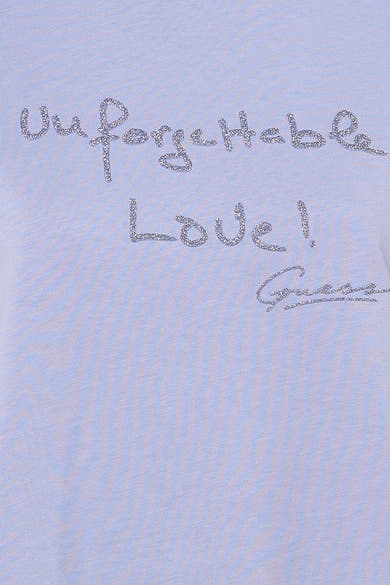 Unforgettable
Love!
Guess